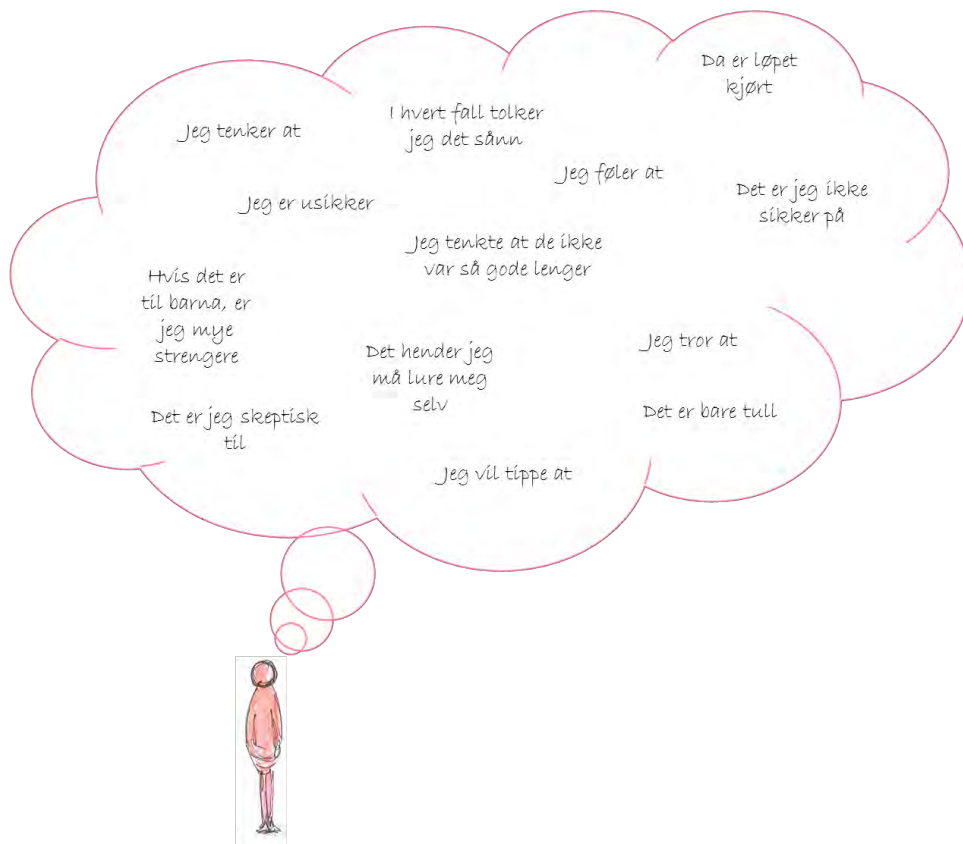 Da er løpet
kjørt
I hvert fall tolker
jeg det sånn
Jeg tenker at
Jeg føler at
Det er jeg ikke
sikker på
Jeg er usikker
Jeg tenkte at de ikke
var så gode lenger
Hvis det er
til barna, er
jeg mye
strengere
Jeg tror at
Det hender jeg
må lure meg
selv
Det er jeg skeptisk
til
Det er bare tull
Jeg vil tippe at